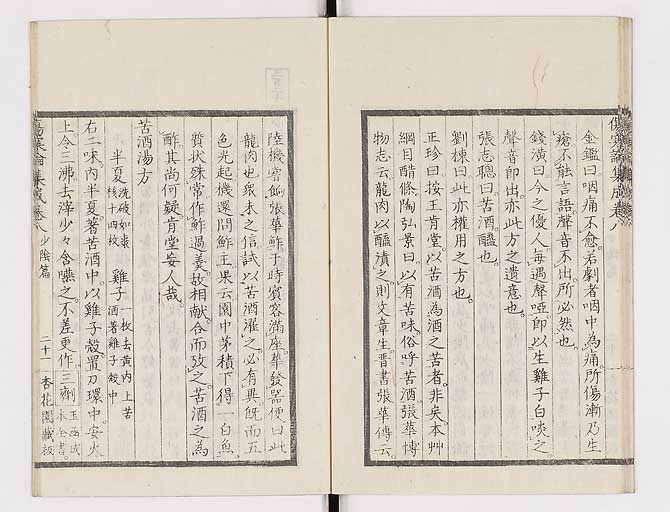 傷寒論集成卷八
金鑑曰咽痛不愈若劇者咽中為痛所傷漸乃生
瘡不能言語聲音不出所必然也
錢潢曰今之優人每遇聲啞即以生雞子白啖之
聲音即出亦此方之遺意也
張志聰曰苦酒醯也
劉棟曰此亦權用之方也
正珍曰按王肯堂以苦酒為酒之苦者非矣本艸
綱目醋條陶弘景曰以有苦味俗呼苦酒張華博
物志云龍肉以醯漬之則文章生晋書張華傳云
陸機嘗餉張華鮓于時賓客滿座華發器便曰此
龍肉也衆未之信試以苦酒濯之必有異既而五
色光起機還問鮓主果云園中茅積下得一白魚
質狀殊常作鮓過美故相献合而攷之苦酒之為
酢其尚何疑肯堂妄人哉
苦酒湯方
半夏洗破如棗核十四枚 雞子一枚去黄内上苦酒著雞子殻中
右二味内半夏著苦酒中以雞子殻置刀環中安火
上令三沸去滓少々含嚥之不差更作三劑
傷寒論集成卷八 少陰篇 二十一 杏花園藏板